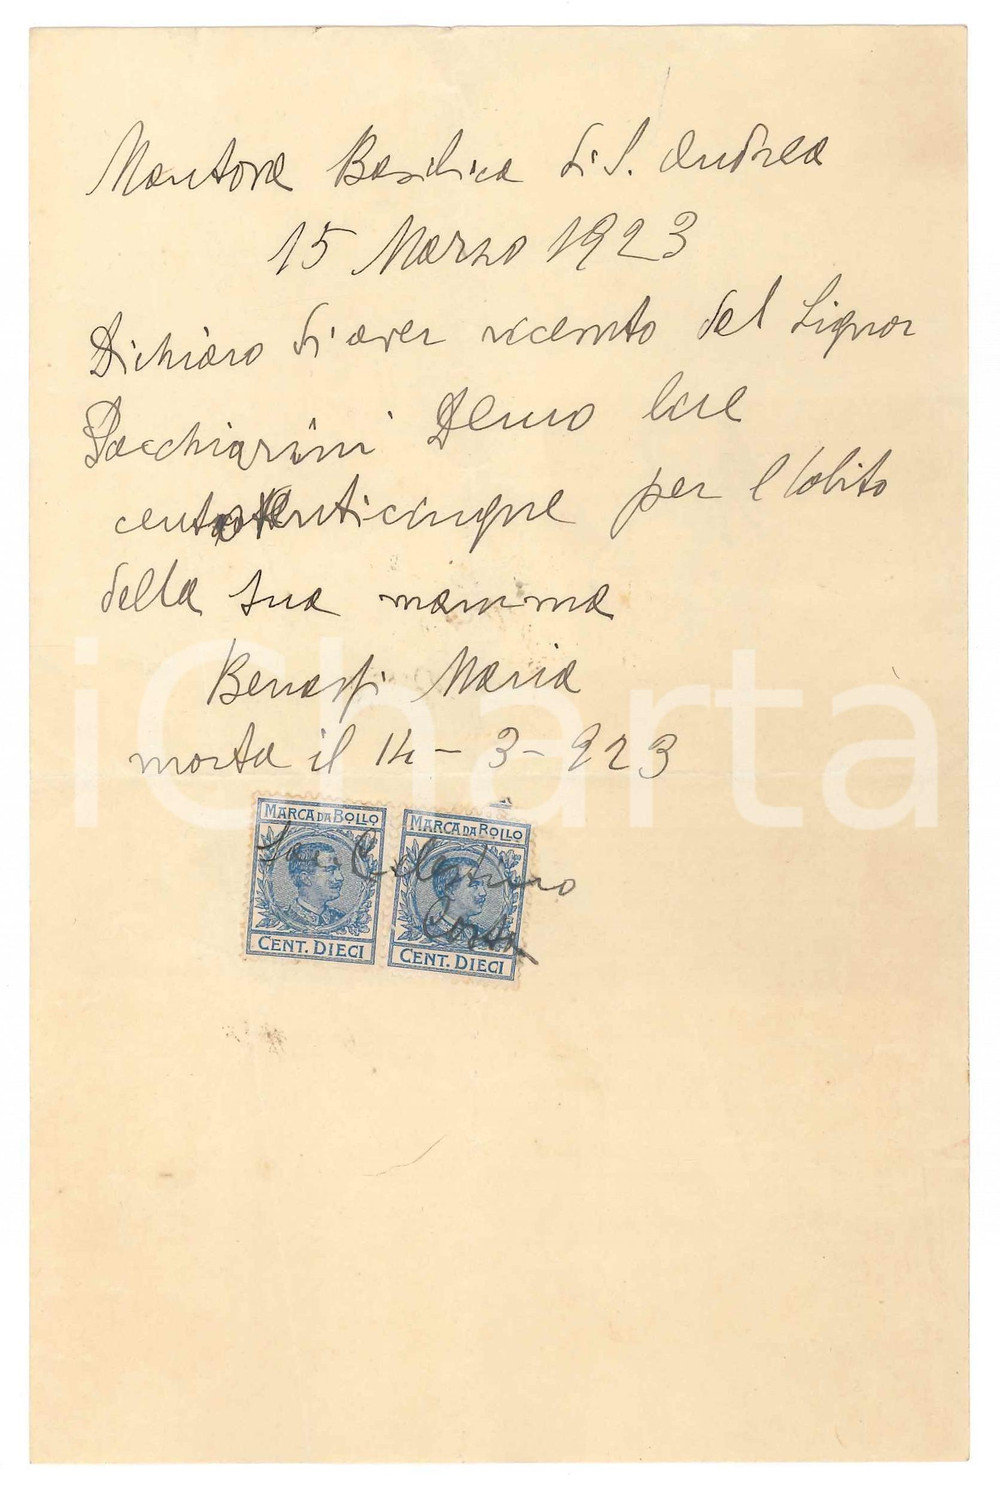 Mantova Basilica di S. Andrea
15 Marzo 1923
Dichiaro di aver ricevuto dal Signor
Pacchiarini Demo lire
centoventicinque per l'obito
della sua mamma
Benassi Maria
morta il 14-3-923
MARCA DA BOLLO MARCA DA BOLLO
Sac. Celestino
Costa
CENT. DIECI CENT. DIECI
iCharta